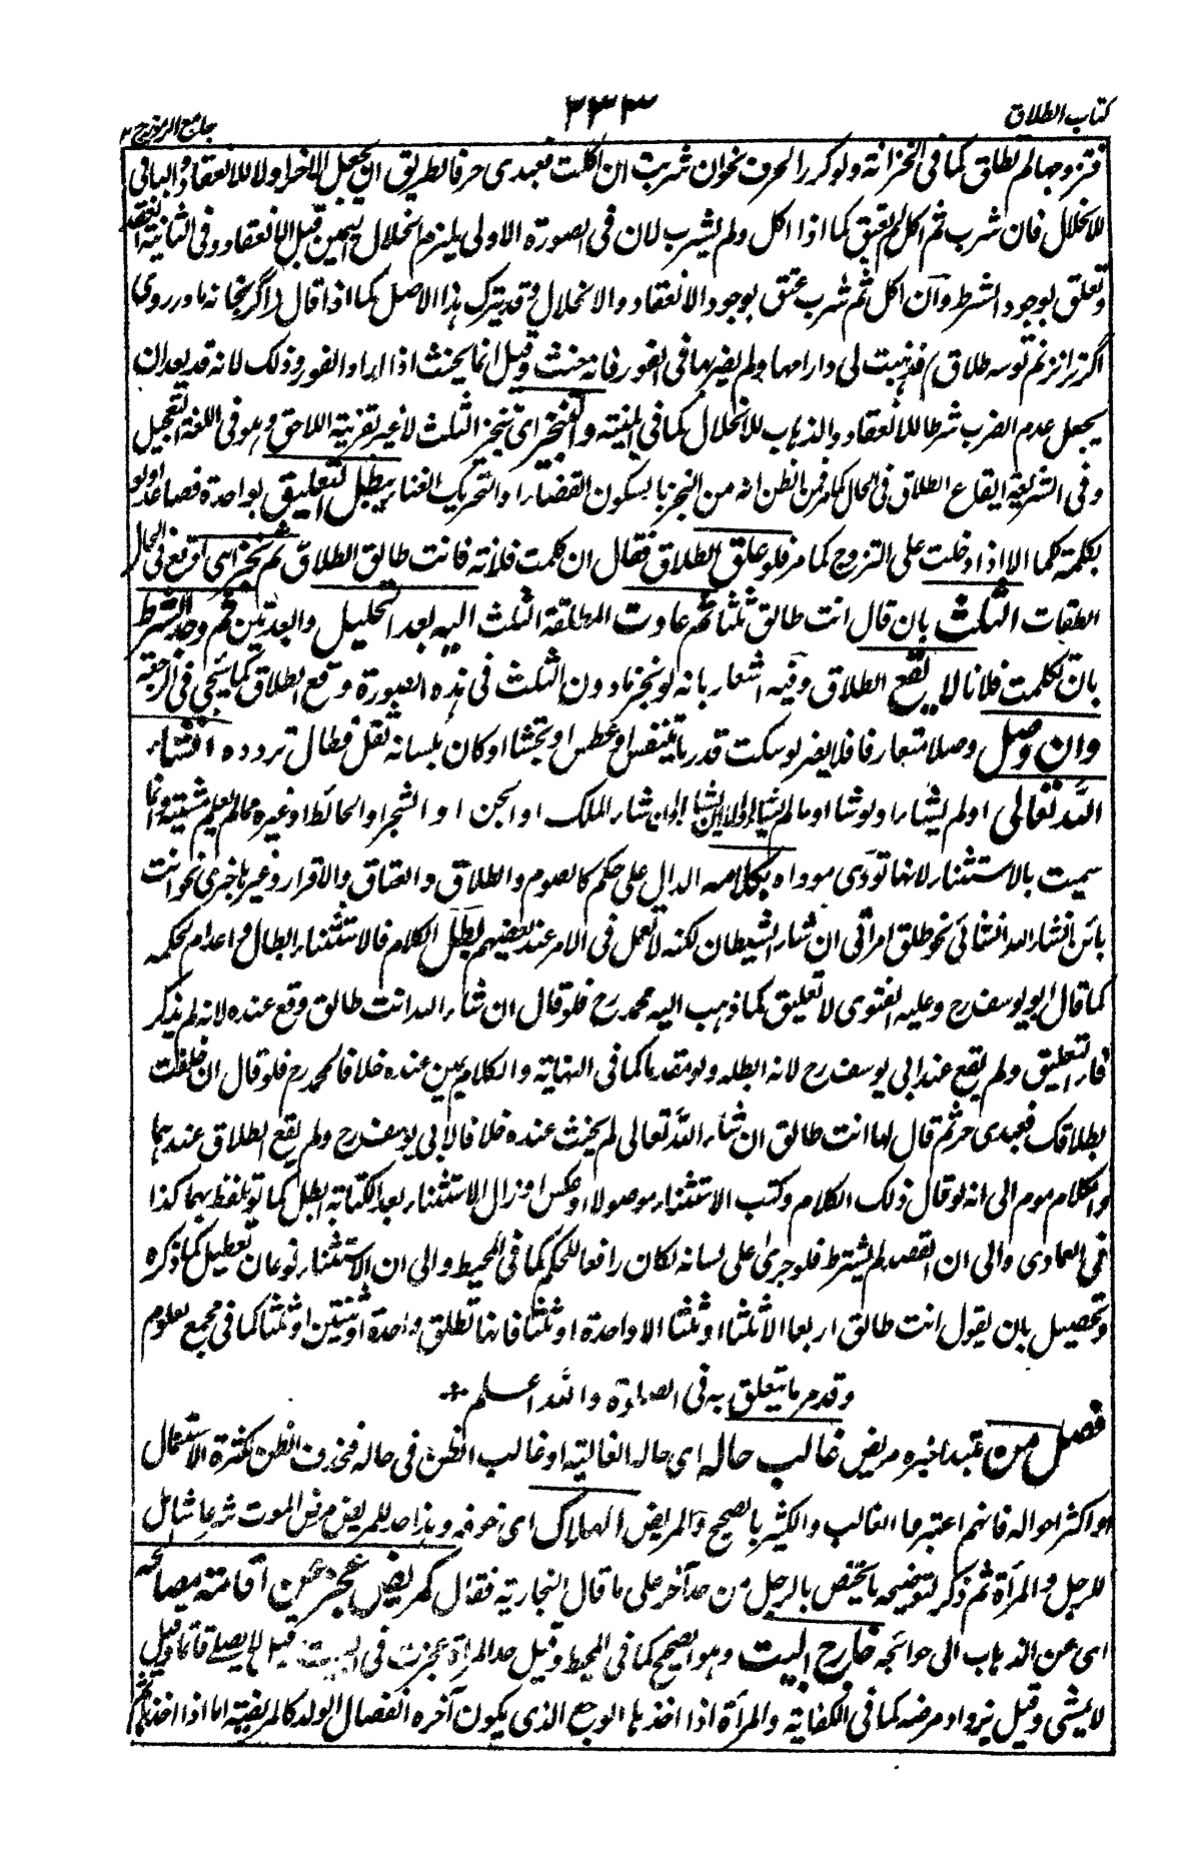 كتاب الطلاق
٢٣٣
جامع الرموز ج ٢
فتزوجها لم تطلق كما فى الخزانة ولو كرر الحرف نحو ان شربت ان اكلت فعبدى حر فالطريق ان يجعل الاخر اولا للانعقاد والباقى
للانحلال فان شرب ثم اكل لم يعتق كما اذا اكل ولم يشرب لان فى الصورة الاولى يلزم انحلال اليمين قبل الانعقاد وفى الثانية انعقد
وتعلق بوجود الشرط وان اكل ثم شرب عتق بوجود الانعقاد والانحلال وقد يترك هذا الاصل كما اذا قال اگر بخانه مادر روى
اگر نزنم تو سه طلاق فذهبت الى دار امها ولم يضربها فى الفور فانه حنث وقيل انما يحنث اذا اراد الفور وذلك لانه قد يعد ان
يجعل عدم الضرب شرطا للانعقاد والذهاب للانحلال كما فى المنية والتنجيز اى تنجيز الثلث لا غير بقرينة اللاحق وهو فى اللغة التعجيل
وفى الشريعة ايقاع الطلاق فى الحال كما مر فمن الظن انه من النجز بالسكون القضاء او التحريك الفناء يبطل التعليق بواحدة فصاعدا ولو
بكلمة كلما الا اذا دخلت على التزوج كما مر فلو علق الطلاق فقال ان كلمت فلانة فانت طالق الطلاق ثم نجز اى اوقع فى الحال
الطلقات الثلث بان قال انت طالق ثلثا ثم عادت المطلقة الثلث اليه بعد التحليل والعدتين ثم وجد الشرط
بان تكلمت فلانا لا يقع الطلاق وفيه اشعار بانه لو نجز ما دون الثلث فى هذه الصورة وقع الطلاق كما يجئ فى الرجعة
وان وصل وصلا متعارفا فلا يضر لو سكت قدر ما يتنفس او عطس او تجشا او كان بلسانه ثقل فطال تردده انشاء
الله تعالى او لم يشا او لو شا او ما لم يشا او الا ان يشا او ان شاء الملك او الجن او الشجر او الحائط او غيره مما لم يعلم مشيته وانما
سميت بالاستثناء لانها تؤدى موداه بكلامه الدال على حكم كالصوم والطلاق والعتاق والاقرار وغيرها خبرى نحو انت
بائن انشاء الله او انشائى نحو طلق امراتى ان شاء الشيطان لكنه لا يعمل فى الامر عند بعضهم بطل الكلام فالاستثناء ابطال واعدام لحكمه
كما قال ابو يوسف رح وعليه الفتوى لا تعليق كما ذهب اليه محمد رح فلو قال ان شاء الله انت طالق وقع عنده لانه لم يذكر
فاء التعليق ولم يقع عند ابى يوسف رح لانه ابطله ولو مقدما كما فى النهاية والكلام يمين عنده خلافا لمحمد رح فلو قال ان حلفت
بطلاقك فعبدى حر ثم قال لها انت طالق ان شاء الله تعالى لم يحنث عنده خلافا لابى يوسف رح ولم يقع الطلاق عندهما
والكلام موم الى انه لو قال ذلك الكلام وكتب الاستثناء موصولا او عكس او زال الاستثناء بعد الكتابة ابطل كما لو تلفظ بهما كذا
فى العمادى والى ان القصد لم يشترط فلو جرى على لسانه لكان رافعا للحكم كما فى المحيط والى ان الاستثناء نوعان تعطيل كما ذكره
وتحصيل بان يقول انت طالق اربعا الا ثلثا او ثلثا الا واحدة او ثلثا فانها تطلق واحدة او ثنتين او ثلثا كما فى مجمع العلوم
وقد مر ما يتعلق به فى الصلوة والله اعلم
فصل من مبتدا خبره مريض غالب حاله اى حاله الغالبة او غالب الظن فى حاله فحذف الظن لكثرة الاستعمال
او اكثر احواله فانهم اعتبروا الغالب والكثير بالصحيح والمريض الهلاك اى خوفه وهذا حد للمريض مرض الموت شرعا شامل
للرجل والمرأة ثم ذكر لتوضيحه ما يختص بالرجل من حد آخر على ما قال البخارية فقال كمريض عجز عن اقامة مصالحه
اى عن الذهاب الى حوائجه خارج البيت وهو الصحيح كما فى المحيط وقيل حد المرأة عجزت فى البيت قيل لا يصلى قائما وقيل
لا يمشى وقيل يزداد مرضه كما فى الكفاية والمرأة اذا اخذها الوجع الذى يكون آخره انفصال الولد كالمريضة اما اذا اخذها ثم